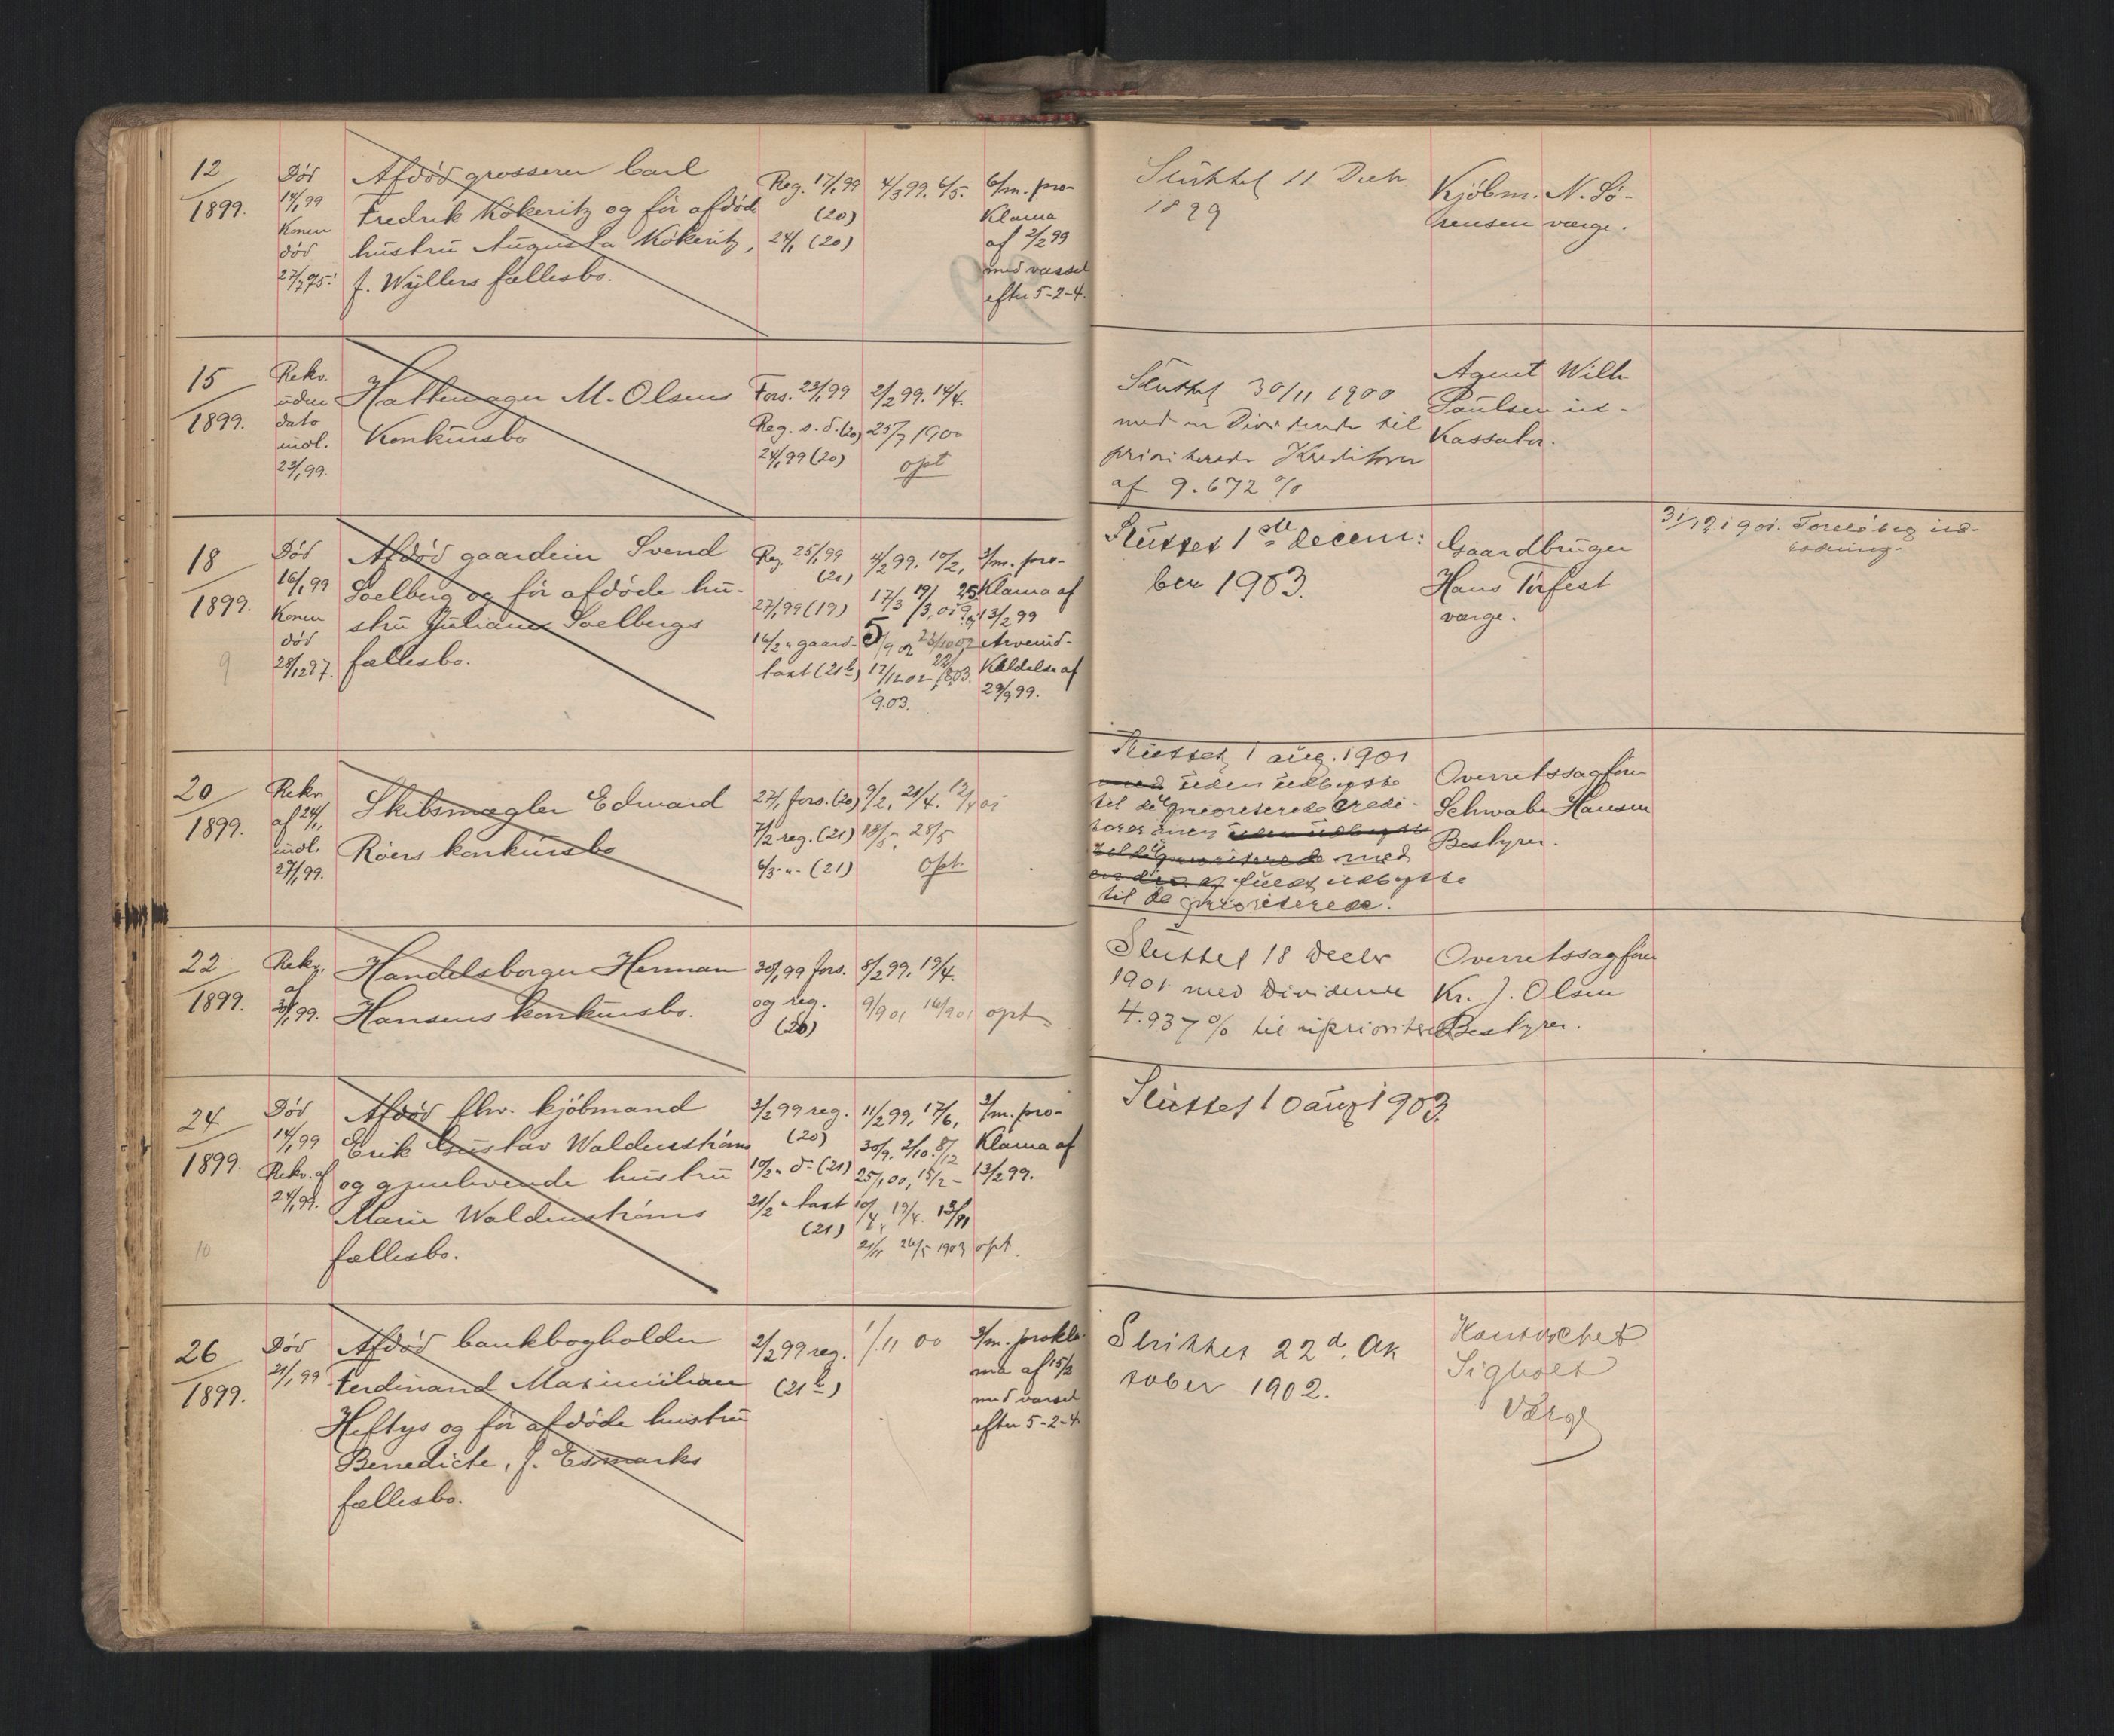 12
1899.
Død
14/1 99
Konen
død
27/7 75.
Afdød grosserer Carl
Fredrik Kökeritz og før afdøde
hustru Augusta Kökeritz,
f. Wyllers fællesbo.
Reg. 17/1 99
(20)
24/1 (20)
4/3 99. 6/5.
6/m. pro-
klama
af 2/2 99
med varsel
efter 5-2-4.
Sluttet 11 Decbr
1899
Kjøbm. N. Sø-
rensen værge.
15
1899.
Rekv.
uden
dato
indl.
23/1 99.
Hattemager M. Olsens
Konkursbo
Fors. 23/1 99
Reg. s. d. (20)
24/1 99 (20)
2/2 99. 14/4.
25/7 1900
opt
Sluttet 30/11 1900
med en Dividende til
prioriterede Kreditorer
af 9.672 %
Agent Wilh
Paulsen in-
kassator.
18
1899.
Død
16/1 99
Konen
død
28/12 97.
9
Afdød gaardeier Svend
Soelberg og før afdøde hu-
stru Juliane Soelbergs
fællesbo.
Reg. 25/1 99
(20)
27/1 99 (19)
16/2 " gaard-
taxt (21b)
4/2 99. 10/2,
17/3
17/12 02
9.03.
3/m. pro-
klama af
13/2 99
Arveind-
kaldelse af
29/9 99.
Sluttet 1ste decem:
ber 1903.
Gaardbruger
Hans Tørfest
værge.
31/12 1901. Foreløbig ud-
lodning.
20
1899.
Rekv.
af 24/1,
indl.
27/1 99.
Skibsmægler Edward
Röers konkursbo
27/1 fors. (20)
7/2 reg. (21)
6/3 - " - (21)
9/2, 21/4.
18/5, 28/5
opt
Sluttet 1 aug. 1901
med uden udbytte
til de uprioriterede credi-
torer men uden udbytte
til de uprioriterede med
fuldt udbytte
til de prioriterede.
Overretssagfører
Schwabe Hansen
Bestyrer.
22
1899.
Rekv.
af
30/1 99.
Handelsborger Herman
Hansens konkursbo.
30/1 99 fors.
og reg.
(20)
8/2 99, 19/4.
9/9 01 16/9 01
opt
Sluttet 18 Decbr
1901 med Dividende
4.937 % til uprioriterede
Overretssagfører
Kr. J. Olsen
Bestyrer.
24
1899.
Død
14/1 99
Rekv. af
24/1 99.
10
Afdød fhv. kjøbmand
Erik Gustav Waldenströms
og gjenlevende hustru
Marie Waldenströms
fællesbo.
3/2 99 reg.
(20)
10/2 " d- (21)
21/2 " taxt
(21)
11/2 99, 17/6,
30/9. 2/10. 8/12
25/1 00, 15/2 -
10/4, 19/4.
21/11 26/5 1903
3/m. pro-
klama af
13/2 99.
opt.
Sluttet 10 aug 1903.
26
1899.
Død
21/1 99
Afdød bankbogholder
Ferdinand Maximilian
Heftys og før afdøde hustru
Benedicte, f. Esmarks
fællesbo.
2/2 99 reg.
(21b)
1/11 00
3/m. prokla-
ma af 15/2
med varsel
efter 5-2-4.
Sluttet 22d. Ok
tober 1902.
Kontorchef
Sigholt
Værge